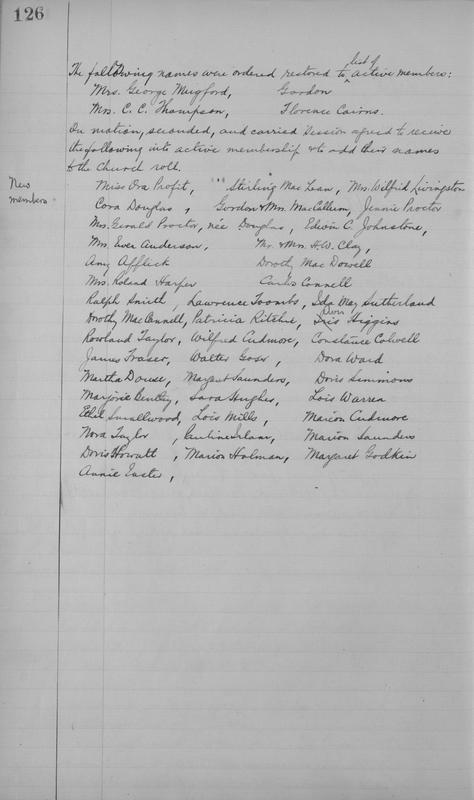 126
The following names were ordered restored to list of active members:
Mrs. George Mugford, Gordon
Mrs. C. C. Thompson, Florence Cairns.
On motion, seconded, and carried Session agreed to receive
the following into active membership & to add their names
to the Church roll.
New
members
Miss Ora Profit, Stirling MacLean, Mrs. Wilfrid Livingston
Cora Douglas, Gordon & Mrs. MacCallum, Jennie Proctor
Mrs. Gerald Proctor, née Douglas, Edwin C. Johnstone,
Mrs. Ever Anderson, Mr. & Mrs. H.W. Clay,
Amy Affleck Dorothy MacDowell
Mrs. Roland Harper Connell
Ralph Smith, Lawrence Toombs, Ida May Sutherland
Dorothy MacConnell, Patricia Ritchie, Iris Higgins
Rowland Taylor, Wilfred Cudmore, Constance Colwell
James Fraser, Walter Goss, Dora Ward
Martha Dowse, Margaret Saunders, Doris Simmons
Marjorie Bentley, Sara Hughes, Lois Warren
Ethel Smallwood, Lois Mills, Marion Cudmore
Nora Taylor, Pauline , Marion Saunders
Doris Howatt, Marion Holman, Margaret Godkin
Annie Easter,